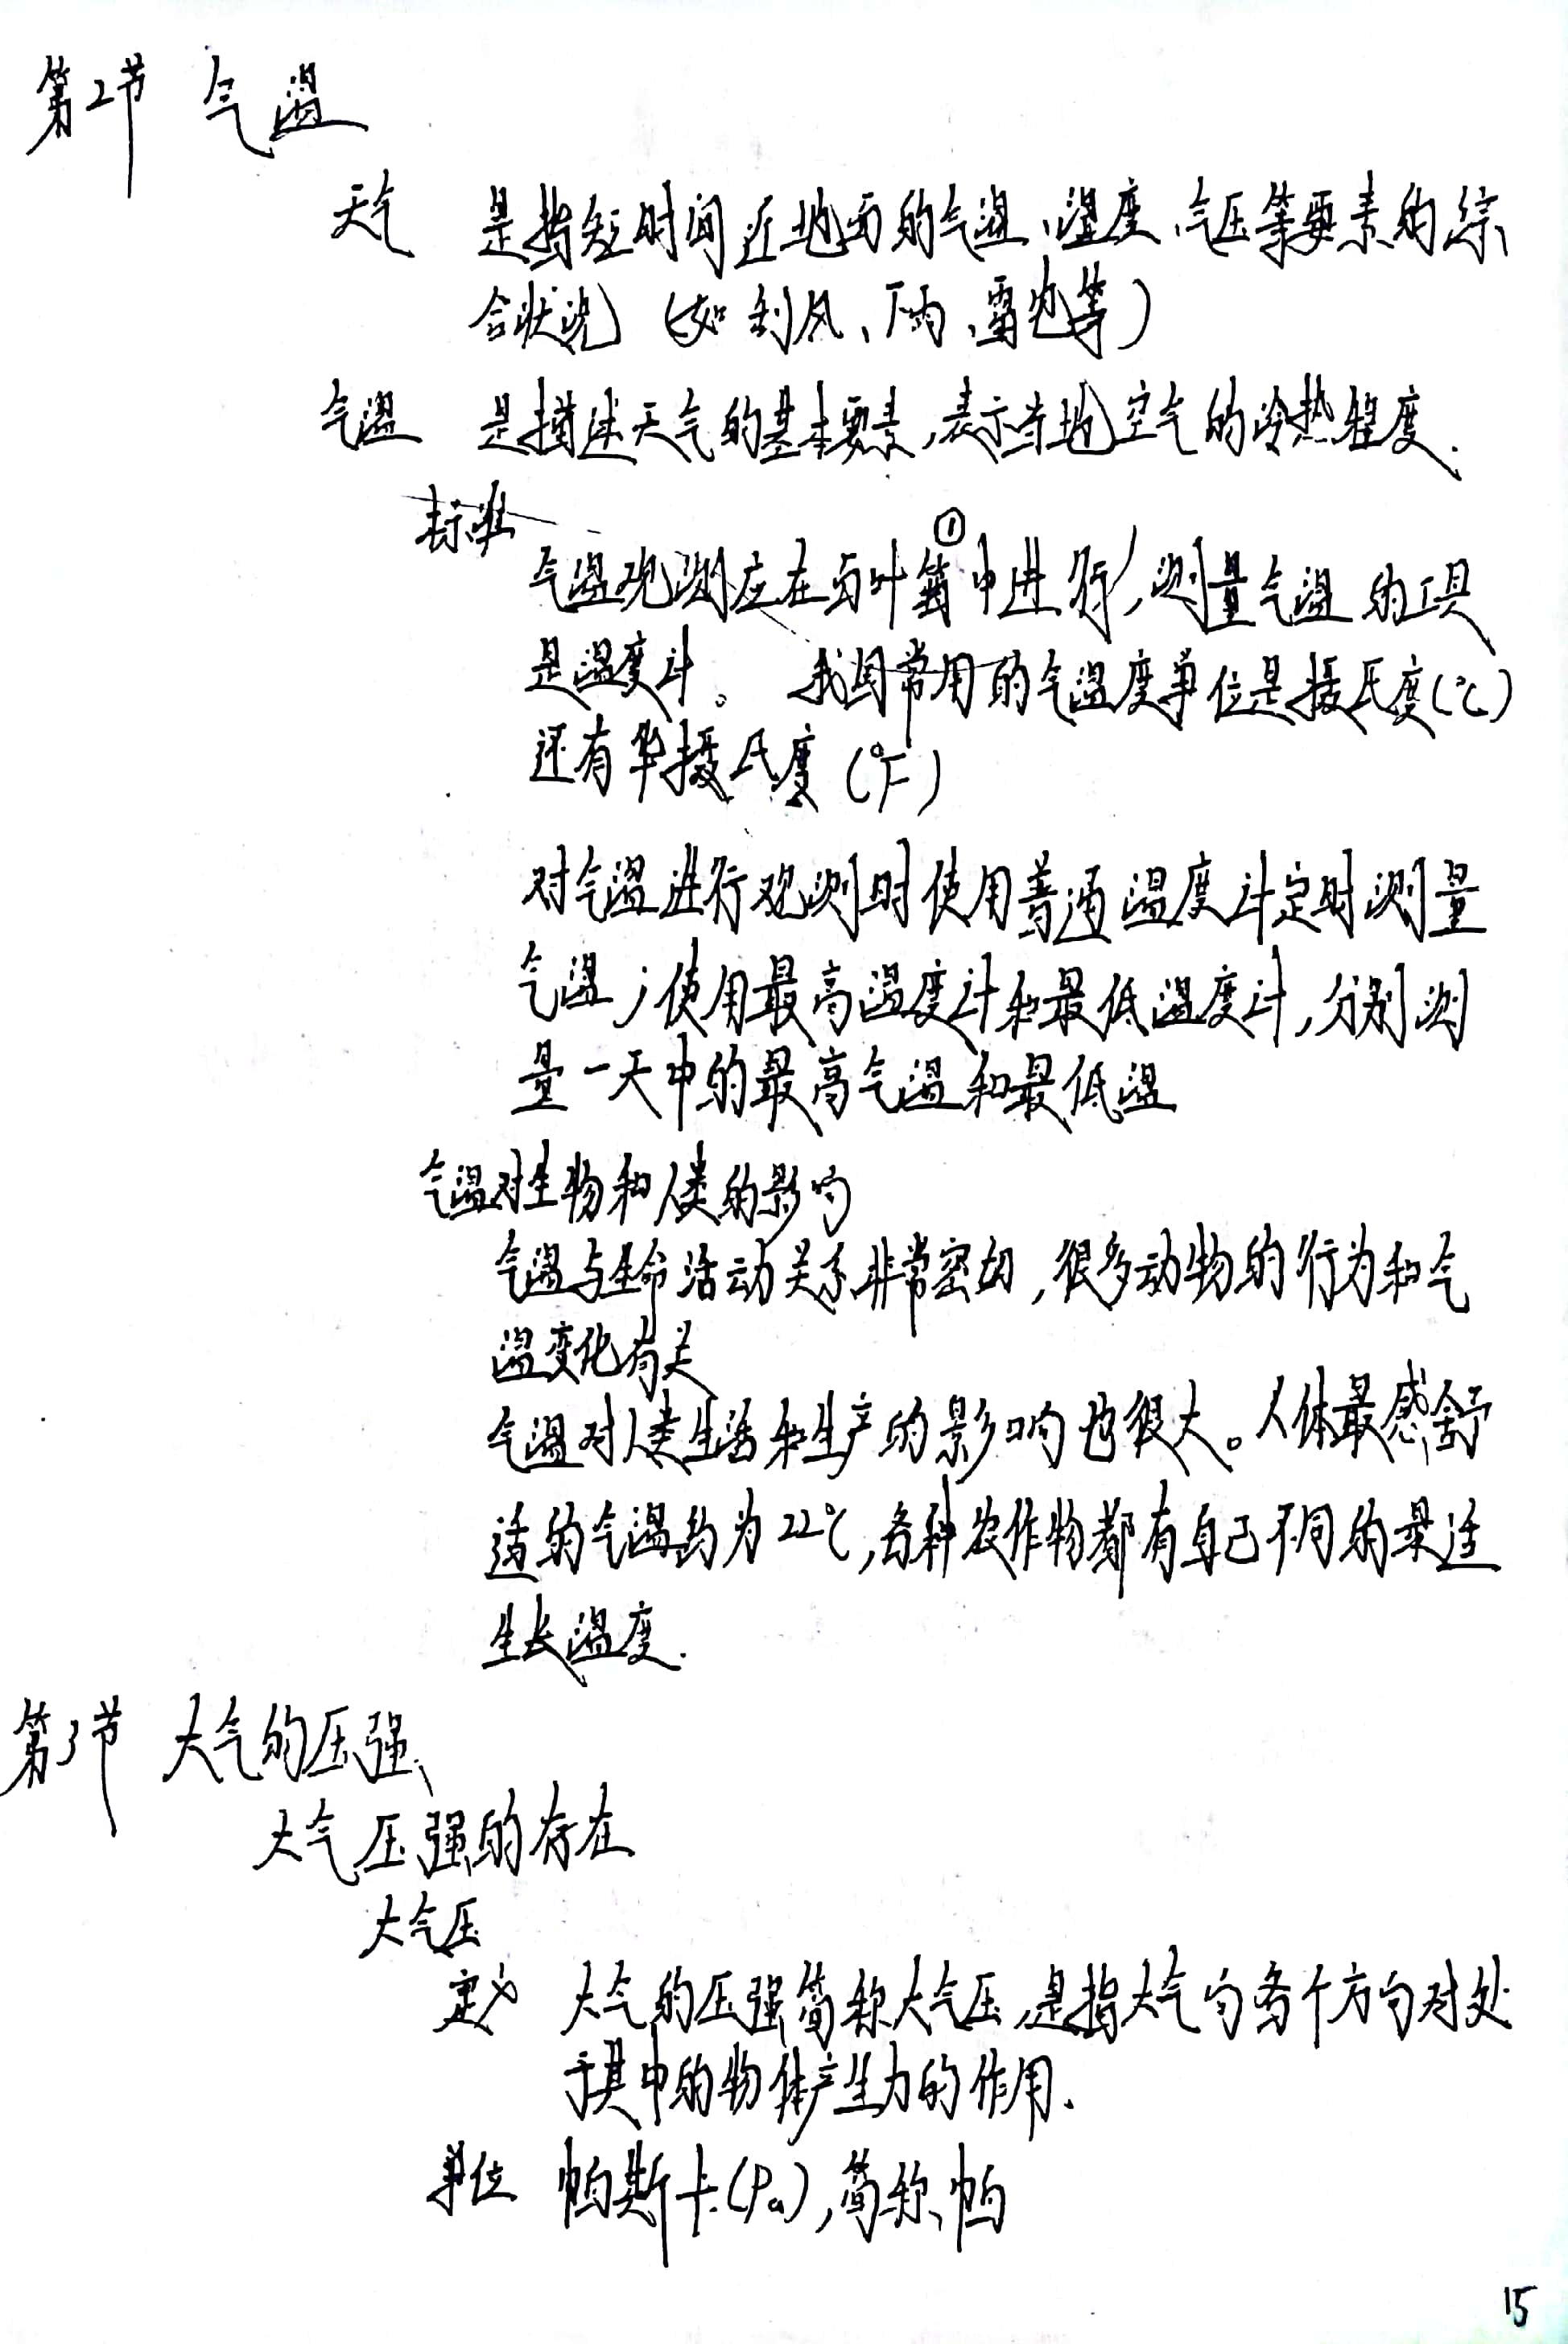 第2节 气温
天气 是指短时间近地面的气温、湿度、气压等要素的综
合状况（如刮风、下雨、雷电等）
气温 是描述天气的基本要素,表示当地空气的冷热程度.
标准
①
气温观测应在百叶箱中进行,测量气温的工具
是温度计。 我国常用的气温度单位是摄氏度(℃)
还有华摄氏度(℉)
对气温进行观测时使用普通温度计定时测量
气温;使用最高温度计和最低温度计,分别测
量一天中的最高气温和最低温
气温对生物和人类的影响
气温与生命活动关系非常密切,很多动物的行为和气
温变化有关
气温对人类生活和生产的影响也很大。人体最感舒
适的气温约为22℃,各种农作物都有自己不同的最适
生长温度.
第3节 大气的压强
大气压强的存在
大气压
定义 大气的压强简称大气压,是指大气向各个方向对处
于其中的物体产生力的作用.
单位 帕斯卡(Pa),简称帕
15